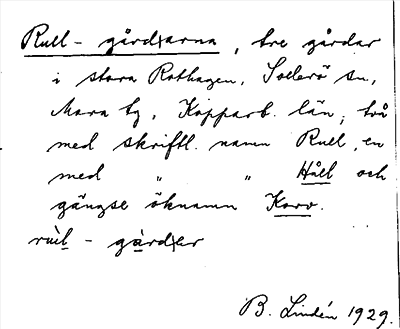 Rull-gårdarna, tre gårdar
i stora Rothagen, Sollerö sn,
Mora tg, Kopparb. län; två
med skriftl. namn Rull, en
med " " Håll och
gängse öknamn Korv.
rul-gårder
B. Lindén 1929.